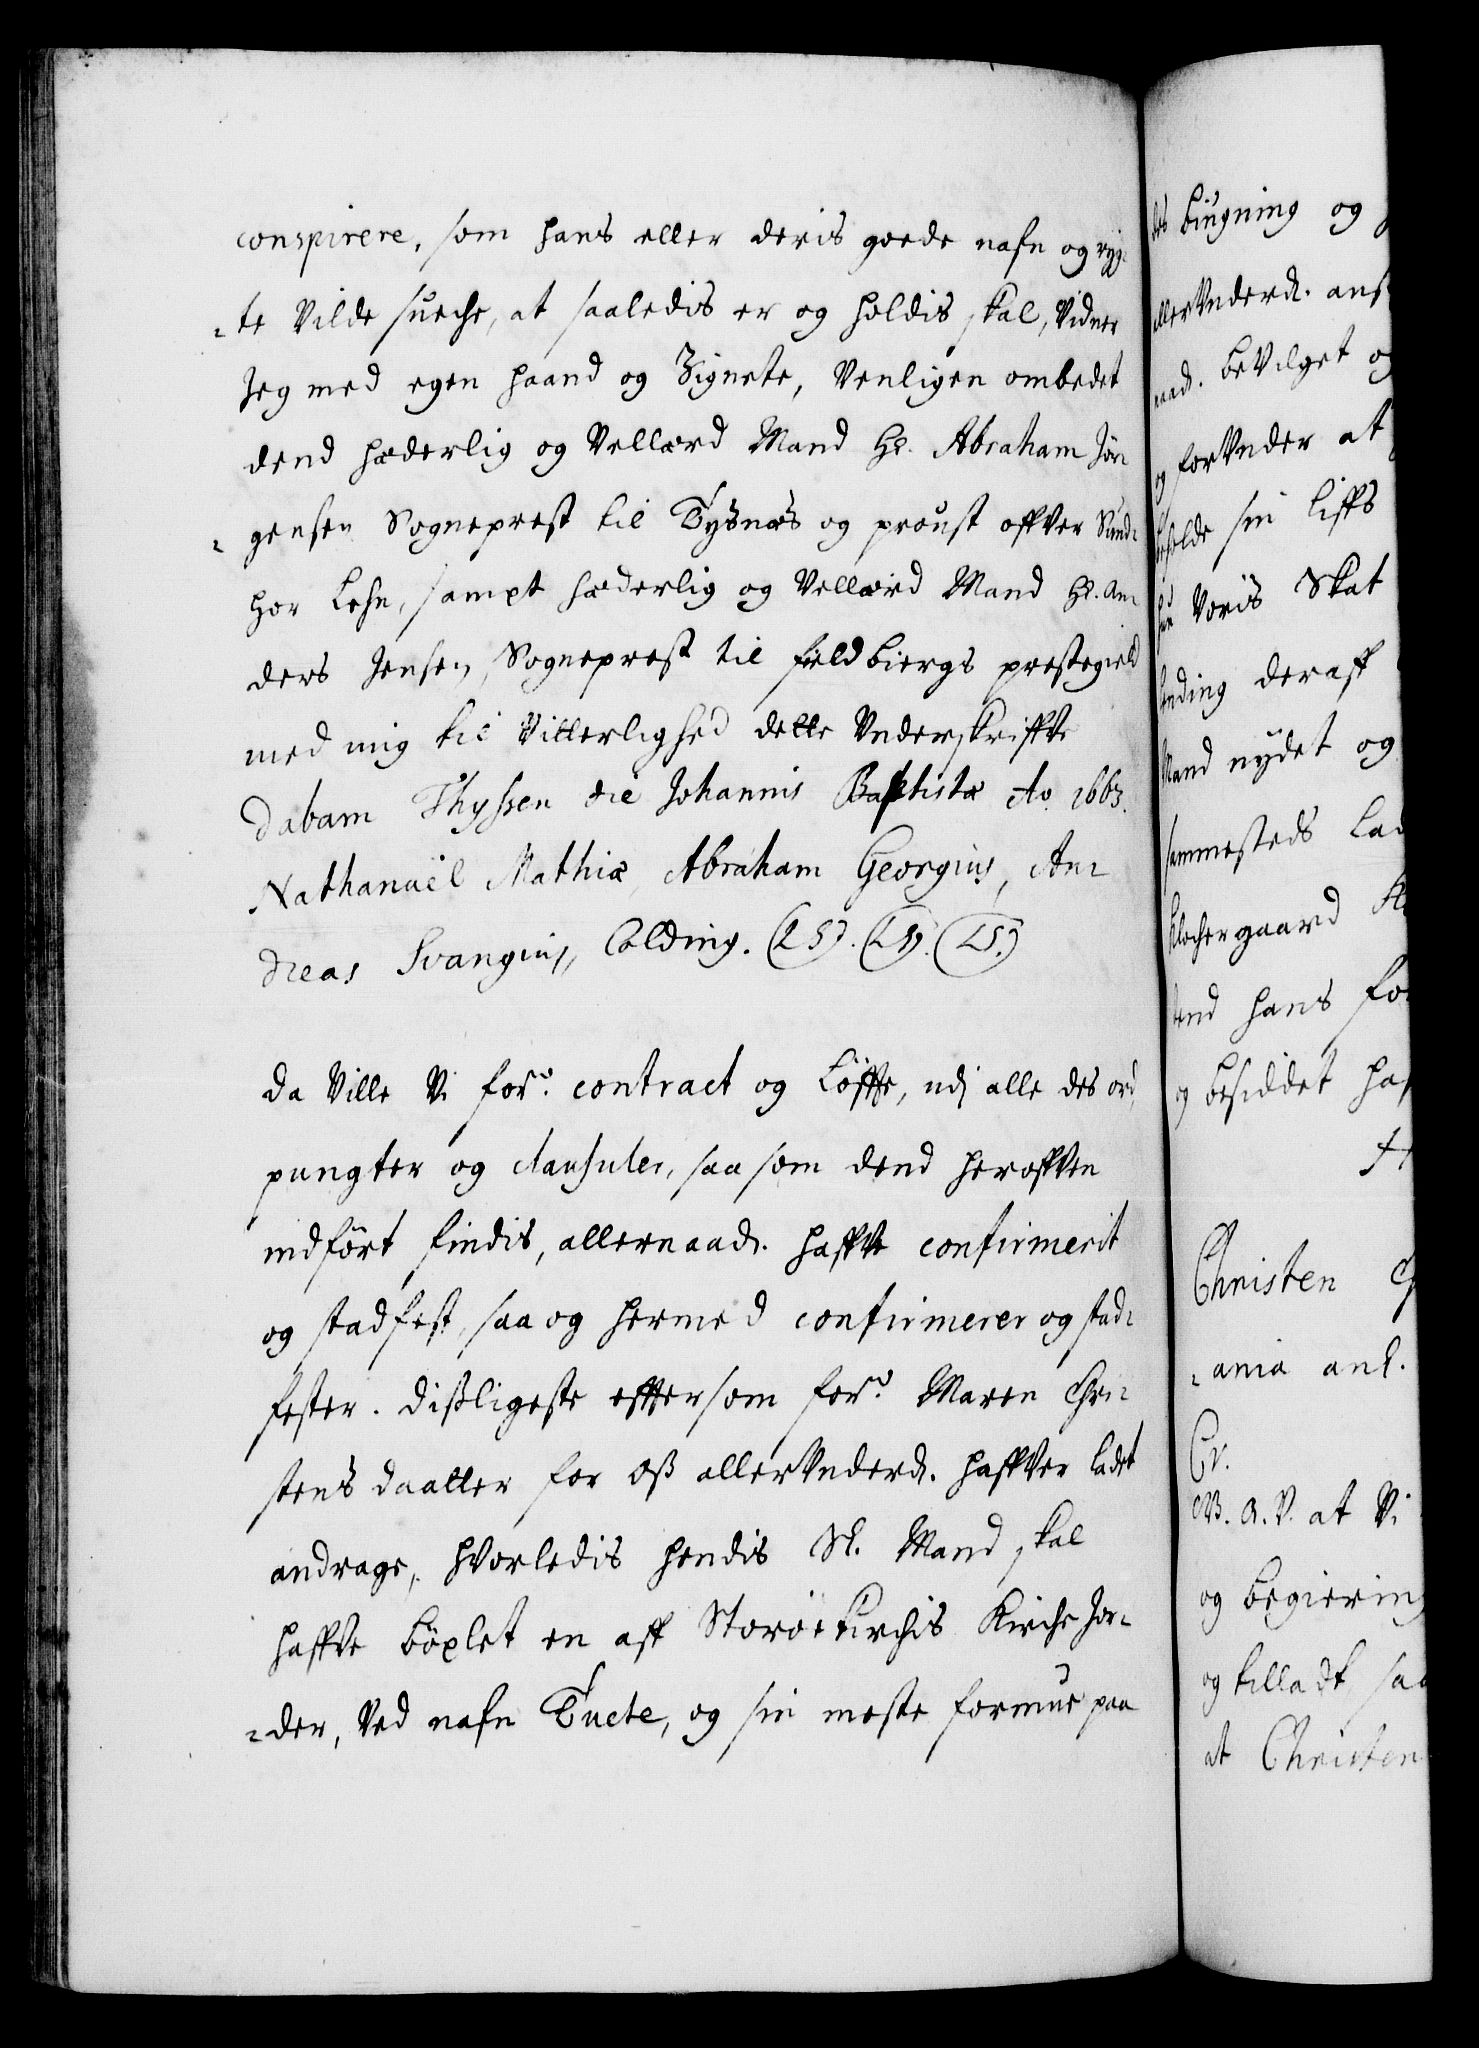 conspirere, som hans eller deris goede nafn og ryg-
-te Vilde sueche, at saaledis er og holdis skal, Vidner
Jeg med egen haand og Zignete, Venligen ombedet
dend hæderlig og Vellærd Mand Hr. Abraham Jør
-gensen Sogneprest til Tysnæs og proust offver Sund-
hor Lehn, sampt hæderlig og Vellærd Mand Hr. An-
ders Jensen, Sogneprest til fieldbiergs prestegield
med mig til Vitterlighed dette Vnderskriffve
Dabam Thyssen die Johannis Baptistæ Ao 1663.
Nathanaël Mathiæ, Abraham Georgius, An-
dreas Svangius, Colding. (LS). (LS). (LS.)
da Ville Vi forne. contract og Løffte, udj alle des ord,
pungter og clausuler, saa som dend heroffven
indført findis, allernaadn. haffve confirmerit
og stadfest, saa og hermed confirmerer og stad-
fester. dissligeste effter som forne. Maren Chri-
stens daatter for oss allerVnderdn. haffver ladet
andrage, hVorledis hendis Sl. Mand skal
haffve böxlet en aff Storöe Kirchis Kirche Jor-
-der, Ved nafn Tuete, og sin meste formue paa
des bÿgning og
allerVnderdn. ans
naad. beVilget og
og forVnder at
beholde sin Liffs
Voris Skat
deraff
Mand nÿdet og
sammesteds Lad
Klochergaard
hans for
og besiddet haf
Christen
-ania anl.
Cr.
W. A. V. at Vi
og begiering
og tilladt, saa
at Christen